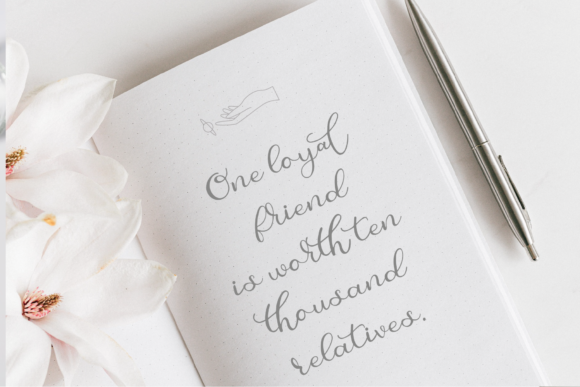 One loyal
friend
is worth ten
thousand
relatives.